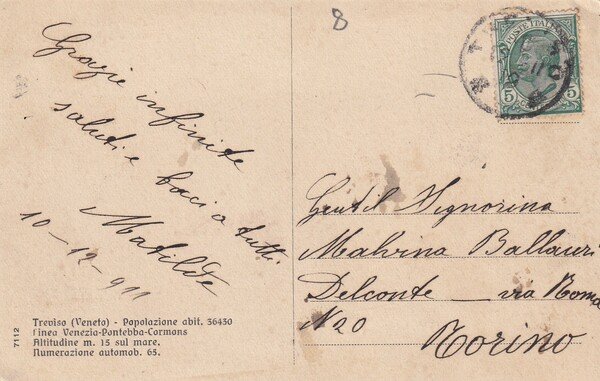 8
Grazie infinite
saluti e baci a tutti
Matilde
10-12-911
Treviso (Veneto) - Popolazione abit. 36430
Linea Venezia-Pontebba-Cormons
Altitudine m. 15 sul mare.
Numerazione automob. 65.
7112
POSTE ITALIANE
5 5
Gentil Signorina
Malvina Ballauri
Delconte - via Roma
N 20
Torino